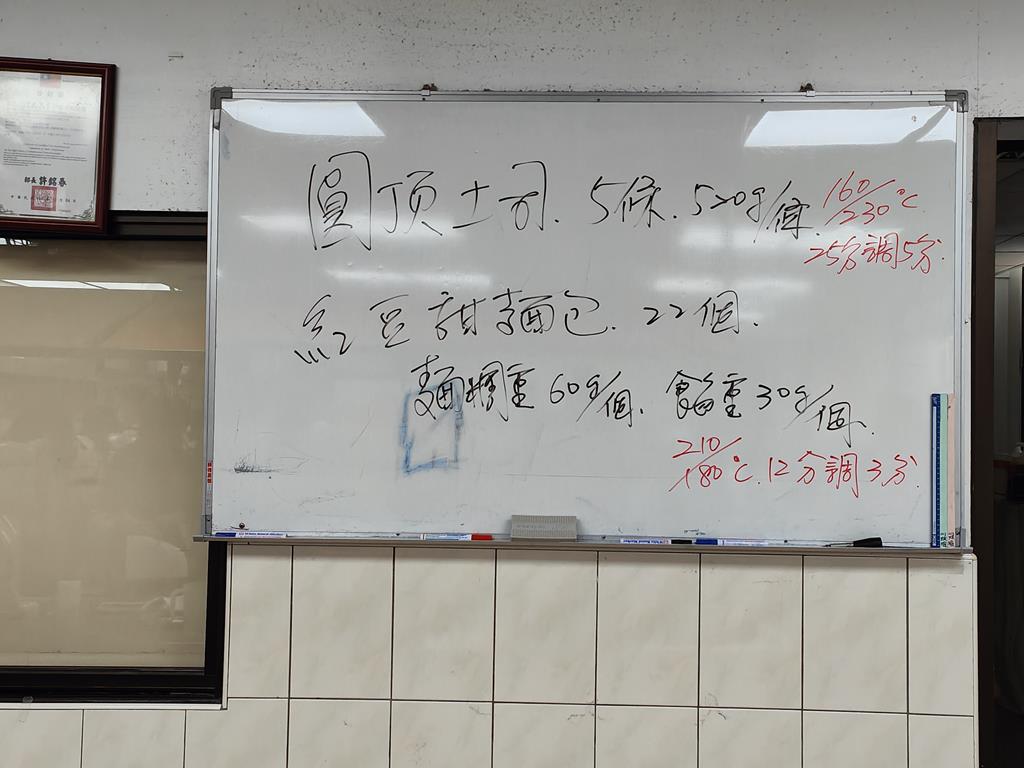 部長 許銘春
圓頂土司. 5條. 520g/條.
160/230℃
25分調5分.
紅豆甜麵包. 22個.
麵糰重 60g/個. 餡重 30g/個.
210/180℃. 12分調3分.